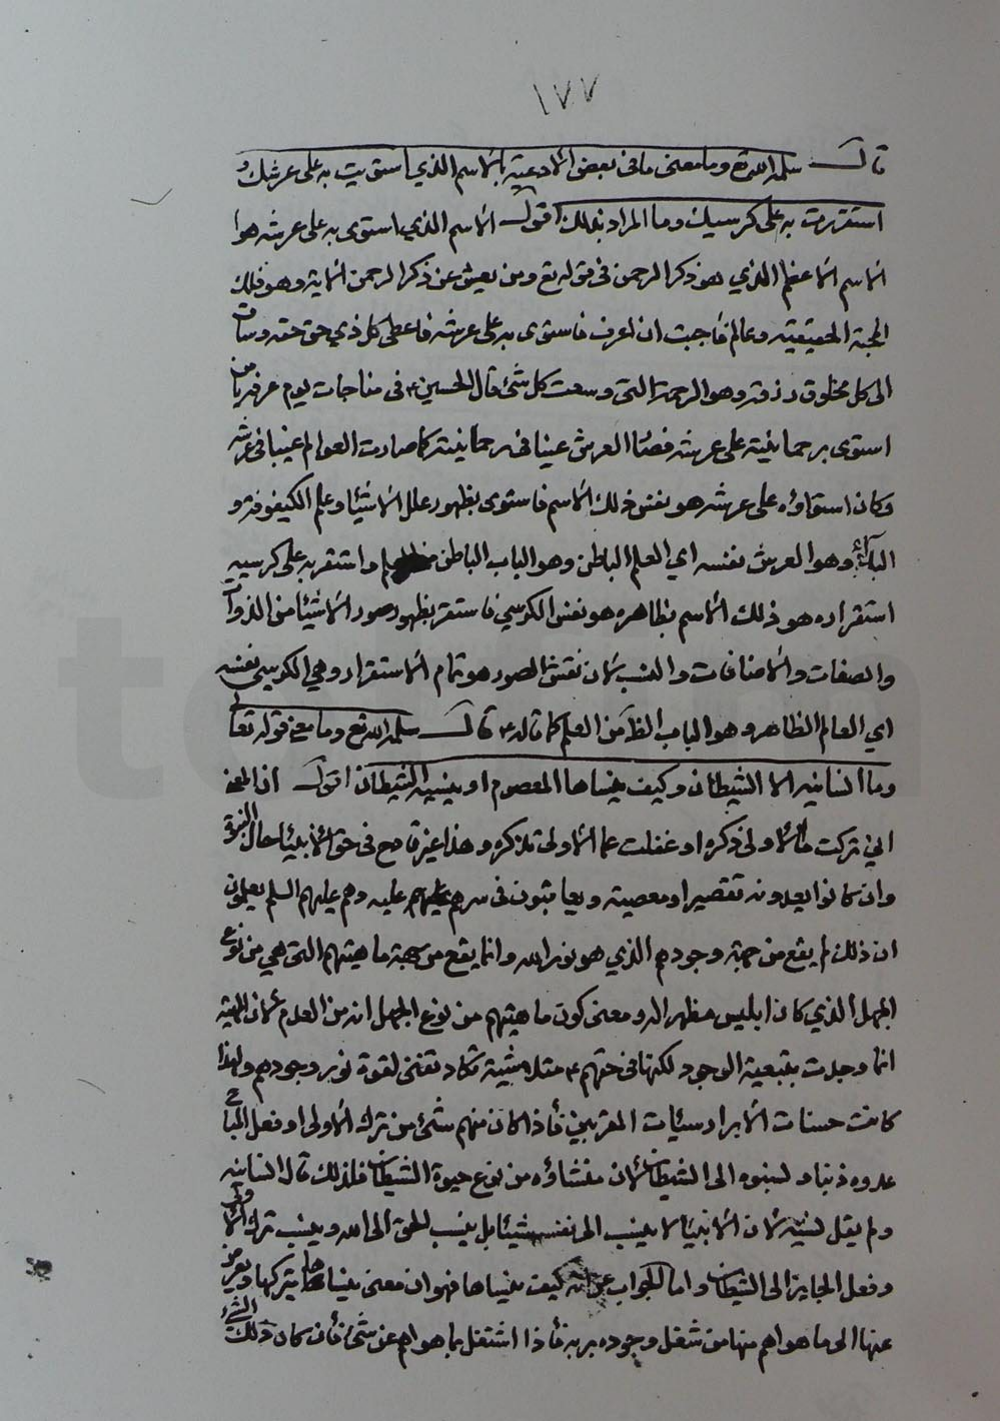 ١٧٧
قال سلمه الله تع وما معنى ما في بعض الادعية بالاسم الذي استويت به على عرشك و
استقررت به على كرسيك وما المراد بذلك اقول الاسم الذي استوى به على عرشه هو
الاسم الاعظم الذي هو ذكر الرحمن في قوله تع ومن يعش عن ذكر الرحمن الاية وهو فلك
المحبة الحقيقية وعالم فاحببت ان اعرف فاستوى به على عرشه فاعطى كل ذي حق حقه وساق
الى كل مخلوق رزقه وهو الرحمة التي وسعت كل شئ قال الحسين ع في مناجات يوم عرفة يا من
استوى برحمانيته على عرشه فصار العرش غيبا في رحمانيته كما صارت العوالم غيبا في عرشه
وكان استواؤه على عرشه هو نفس ذلك الاسم فاستوى بظهور علل الاشياء وعلم الكيفوفة و
البداء وهو العرش نفسه اي العلم الباطن وهو الباب الباطن من العلم واستقر به على كرسيه
استقراره هو ذلك الاسم بظاهره هو نفس الكرسي فاستقر بظهور صور الاشياء من الذوات
والصفات والاضافات والنسب لان نقش الصور هو تمام الاستقرار وهي الكرسي نفسه
اي العالم الظاهر وهو الباب الظاهر من العلم كما قاله ع قال سلمه الله تع وما معنى قوله تعالى
وما انسانيه الا الشيطان وكيف ينساها المعصوم او ينسيه الشيطان اقول ان المعنى
اني تركت ما الاولى ذكره او غفلت عما الاولى تذكره وهذا غير قادح في حق الانبياء حال النبوة
وان كانوا يعدونه تقصيرا ومعصية ويعاتبون في سرهم عليه وهم عليهم السلم يعلمون
ان ذلك لم يقع من جهة وجودهم الذي هو نور الله وانما يقع من جهة ماهيتهم التي هي من نوع
الجهل الذي كان ابليس مظهرا له ومعنى كون ماهيتهم من نوع الجهل انه من العدم لان المهية
انما وجدت بتبعية الوجود لكنها في حقهم ع مثلا مشيئة تكاد تفنى لقوة نور وجودهم ولهذا
كانت حسنات الابرار سيئات المقربين فأذا كان منهم شئ من ترك الاولى او فعل المباح
عدوه ذنبا ونسبوه الى الشيطان لان منشاؤه من نوع حيوة الشيطان فلذلك قال انسانيه
ولم يقل نسيته لان الانبياء لا ينسب الى نفسه شيئا بل ينسب للحق الى الله وينسب ترك الاولى
وفعل الجايز الى الشيطان واما الجواب عن انه كيف ينساها فهو ان معنى ينساها يتركها ويعرض
عنها الى ما هو اهم منها من شغل وجوده بربه فأذا اشتغل بما هو اهم عن شئ فأن كان ذلك الشئ